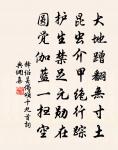 大地蹭翻無寸土
昆虫介甲绝行踪
护生禁足元勋在
圆觉伽蓝一扫空
释绍昙偈颂十九首 詞
典網集